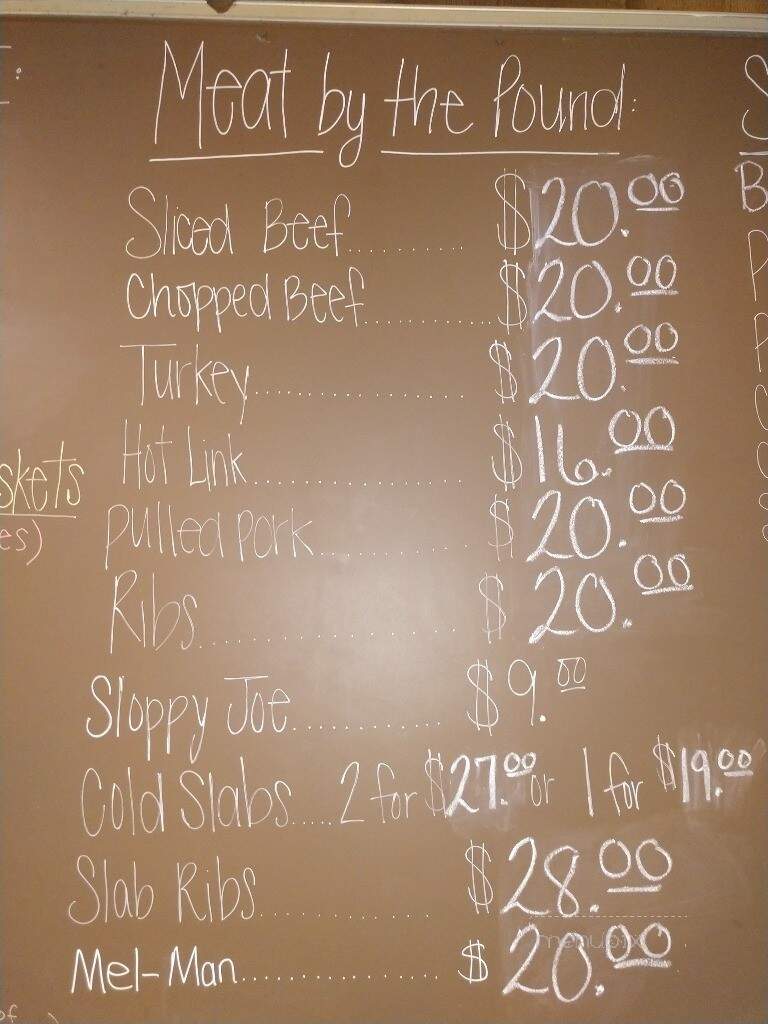 Meat by the Pound:
Sliced Beef.......... $20.00
Chopped Beef.......... $20.00
Turkey.................... $20.00
Hot Link.................... $16.00
skets
Pulled Pork.............. $20.00
es)
Ribs........................ $20.00
Sloppy Joe.............. $9.00
Cold Slabs.....2 for $27.00 or 1 for $19.00
Slab Ribs.............. $28.00
menupix
Mel-Man.................. $20.00